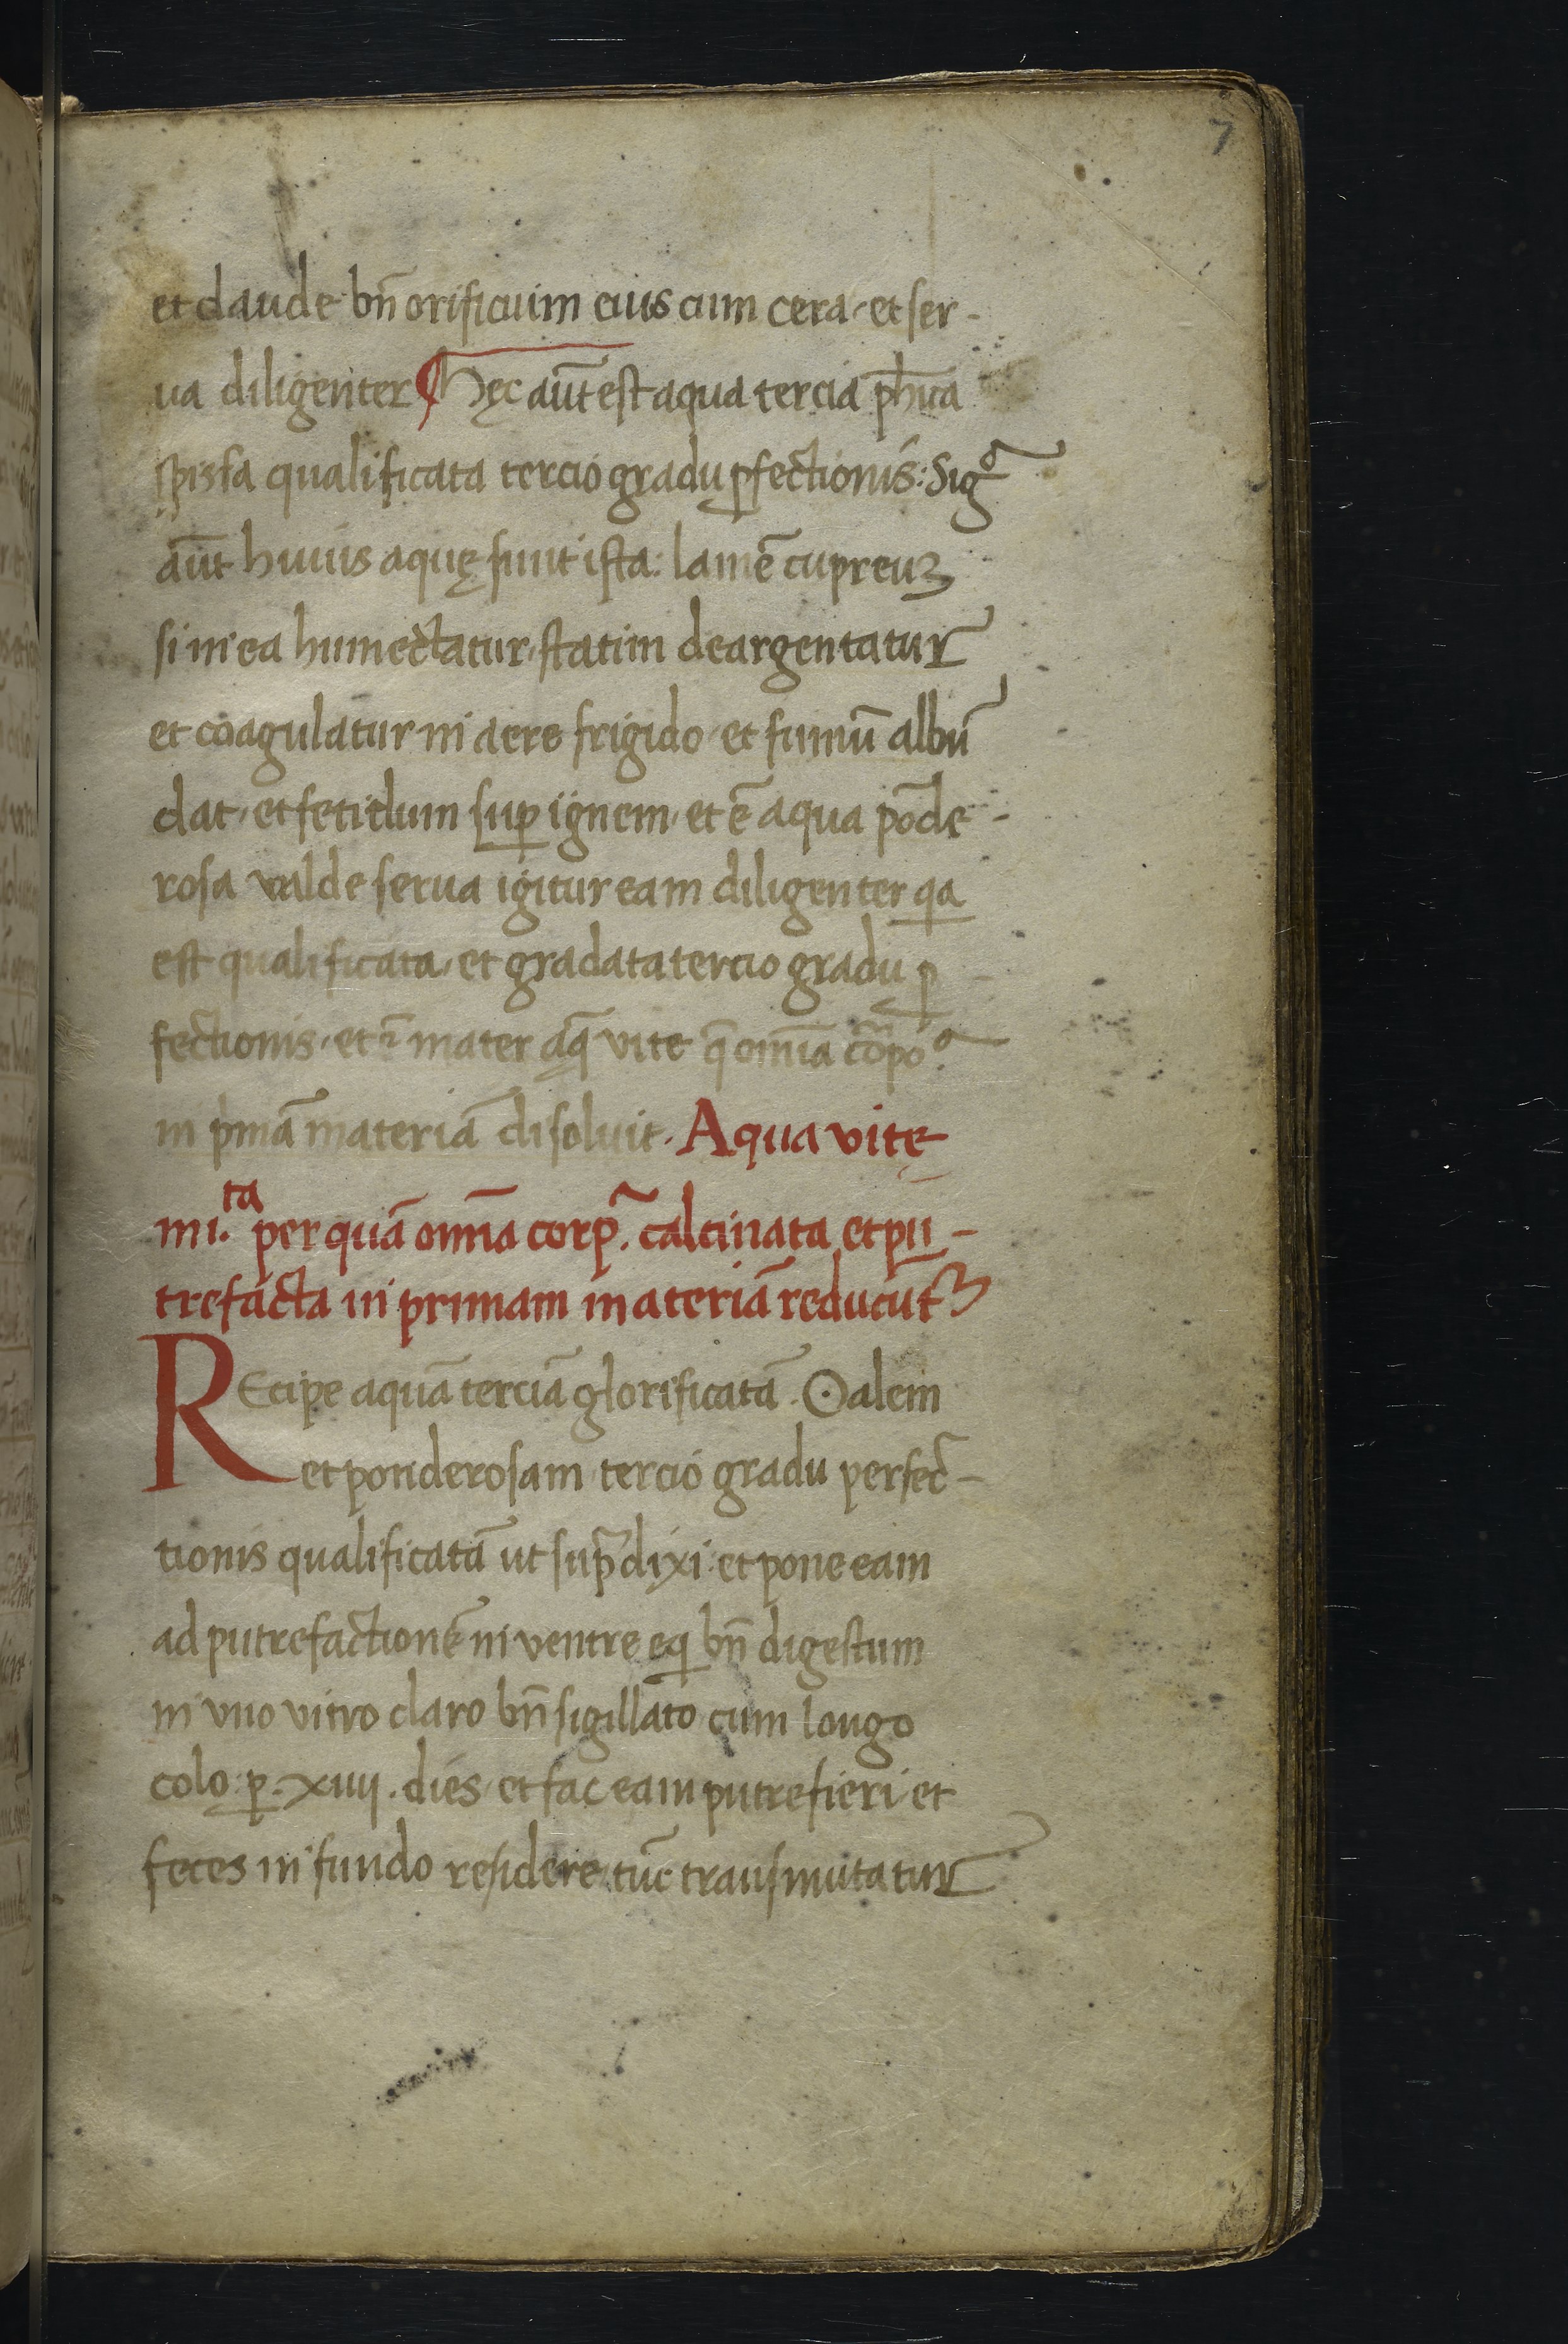 7
et claude bn̄ orificium eius cum cera· et ser-
ua diligenter ¶ Hęc aūt est aqua tercia ph̄ica
spissa qualificata tercio gradu ꝑfectionis: Sigᵃ
aūt huius aquę sunt ista: lamē cupreuꝫ
si in ea humectatur· statim deargentatur
et coagulatur in aere frigido· et fumū albū
dat· et fetidum suꝑ ignem· et ē aqua pōde-
rosa valde serua igitur eam diligenter qa
est qualificata· et gradata tercio gradu ꝑ
fectionis· et ē mater aq̄ vite q̄ omīa cōrpoᵃ
in pͥmā materiā disoluit. Aqua vitę
iiii.ᵗᵃ per quā om̄ia corpᵃ. calcinata et pu-
trefacta in primam materiā reducūtᷣ
REcipe aquā terciā glorificatā. ʘalem
et ponderosam tercio gradu perfec̄-
tionis qualificatā ut sup̄ dixi: et pone eam
ad putrefactionē in ventre eq̇ bn̄ digestum
in vno vitro claro bn̄ sigillato cum longo
colo: ꝑ. xiiij. dies· et fac eam putrefieri et
feces in fundo residere· tūc transmutatur